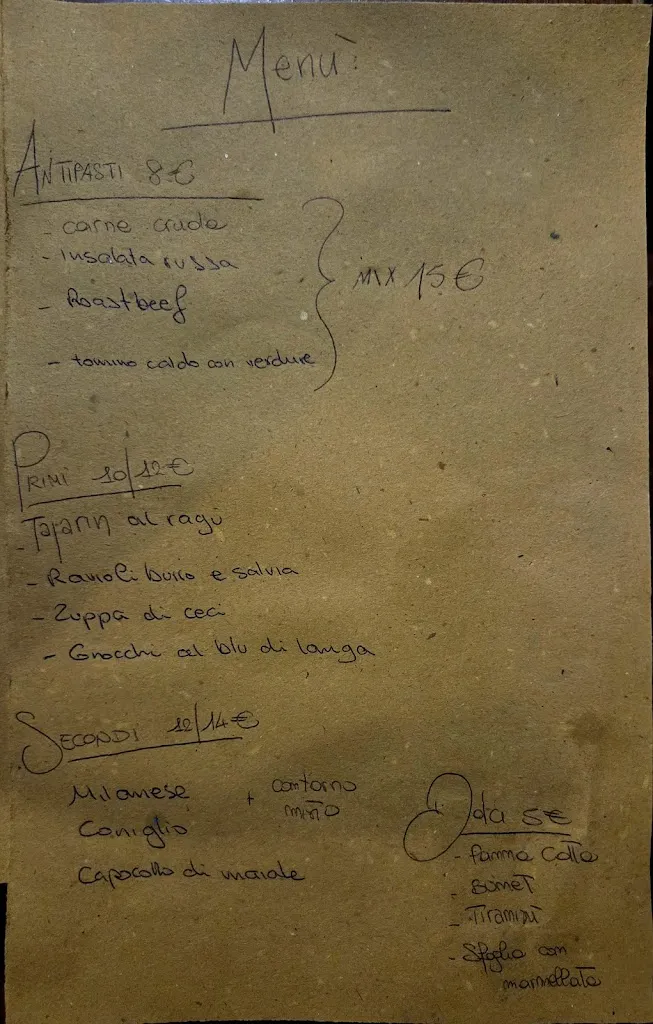 Menù:
ANTIPASTI 8€
- carne cruda
- insalata russa
- Roastbeef
- tomino caldo con verdure
MIX 15€
PRIMI 10/12€
- Tajarin al ragù
- Ravioli burro e salvia
- Zuppa di ceci
- Gnocchi al blu di langa
SECONDI 12/14€
Milanese
Coniglio
Capocollo di maiale
+ contorno
misto
da 5€
- Panna Cotta
- Bunet
- Tiramisù
- Sfoglia con
marmellata